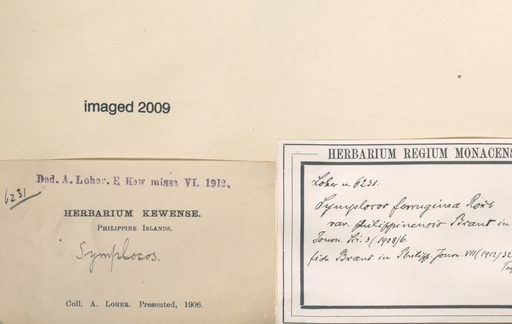 imaged 2009
Ded. A. Loher. E Kew missa VI. 1912.
6231
HERBARIUM KEWENSE.
PHILIPPINE ISLANDS.
Symplocos.
Coll. A. LOHER. Presented, 1906.
HERBARIUM REGIUM MONACENS
Loher n. 6231.
Symplocos ferruginea Roxb
var. philippinensis Brand in
Journ. Sci. 3/(1908)6.
fide Brand in Philipp. Journ. VII (1912) 32